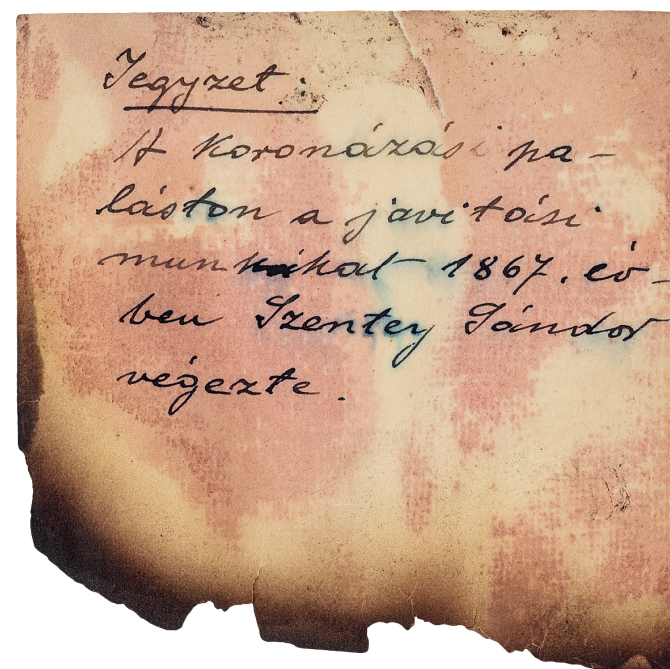 Jegyzet:
A koronázási pa-
láston a javitási
munkákat 1867. év-
ben Szentey Sándor
végezte.